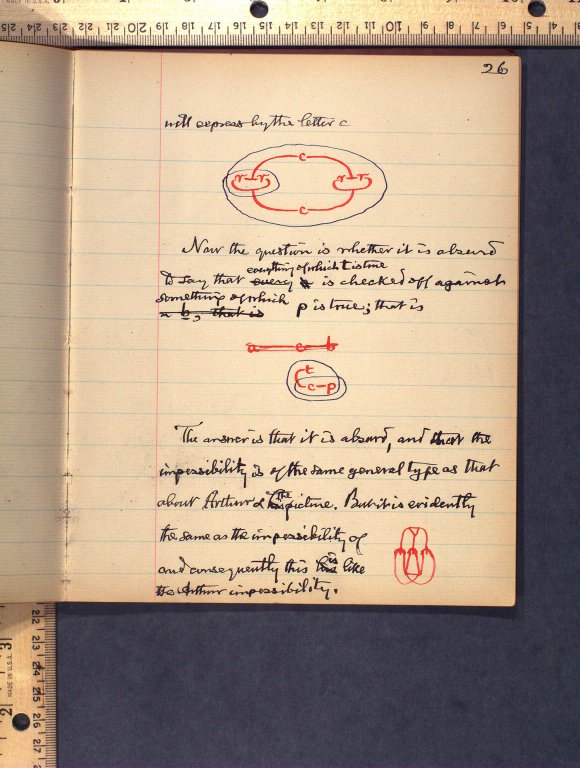 26
will express by the letter c
c
r r r r
c
Now the question is whether it is absurd
everything of which t is true
to say that every is checked off against
something of which
a b, that is p is true; that is
a c b
t
c p
The answer is that it is absurd, and that the
impossibility is of the same general type as that
about Arthur & the picture. But it is evidently
the same as the impossibility of
and consequently this is like
the Arthur impossibility.